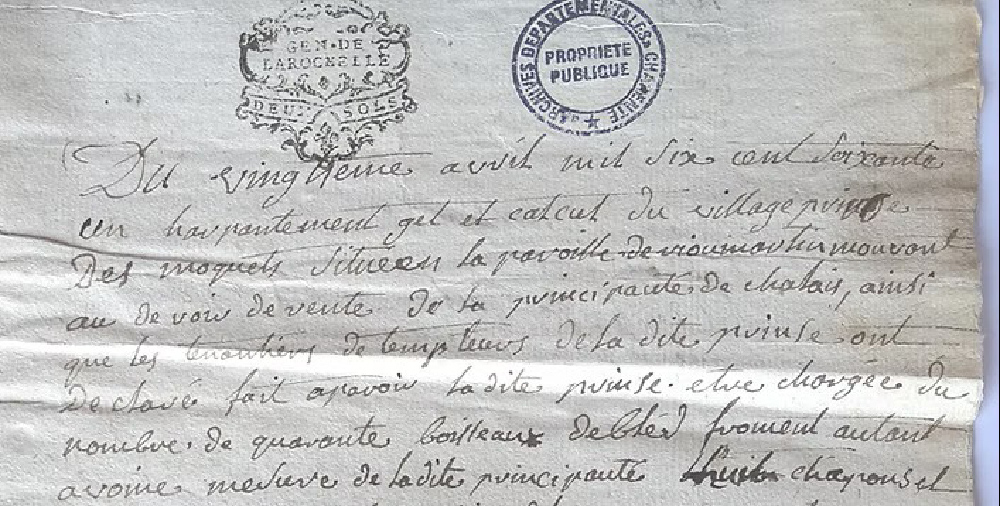 GEN·DE
LAROCHELLE
DEUX SOLS
ARCHIVES DEPARTEMENTALES CHARENTE
PROPRIETE
PUBLIQUE
Du vingtieme avril mil six cent soixante
un harpantement get et calcul du village prinse
Des moquets situeen la paroisse de rioumartin mouvant
au devoir de vente de la principauté de chalais, ainsi
que les tenantiers de templeurs de la dite prinse ont
Declaré fait aparoir ladite prinse etre chargée du
nombre de quarante boisseaux debled froment autant
avoine mesure de ladite principauté huit chaponset